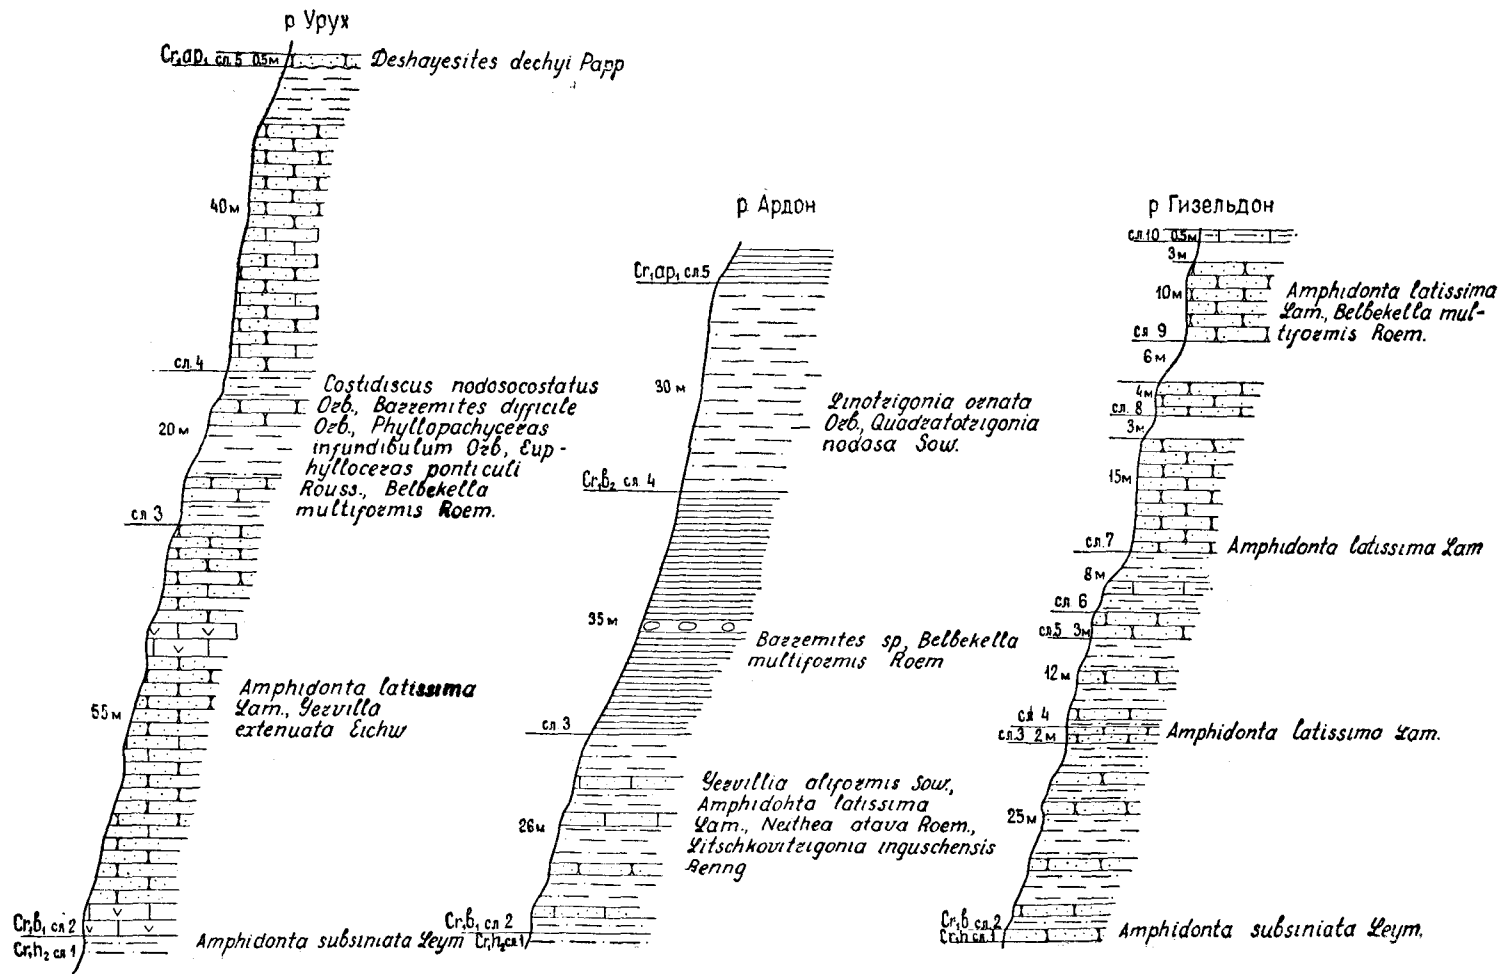 р Урух
Cr₁ap₁ сл. 5 0.5м
Deshayesites dechyi Papp
40 м
сл. 4
Costidiscus nodosocostatus
Orb., Barremites difficile
Orb., Phyllopachyceras
infundibulum Orb, Eup-
hylloceras ponticuli
Rouss., Belbekella
multiformis Roem.
20 м
сл 3
Amphidonta latissima
Lam., Gervilla
extenuata Eichw
55 м
Cr₁b₁ сл 2
Cr₁h₂ сл 1
Amphidonta subsiniata Leym
р. Ардон
Cr₁ap₁ сл. 5
30 м
Linotrigonia ornata
Orb., Quadratotrigonia
nodosa Sow.
Cr₁b₂ сл. 4
35 м
Barremites sp, Belbekella
multiformis Roem
сл. 3
Gervillia aliformis Sow.,
Amphidonta latissima
Lam., Neithea atava Roem.,
Litschkovitrigonia inguschensis
Renng
26 м
Cr₁b₁ сл 2
Cr₁h₂ сл 1
р Гизельдон
сл. 10 0.5м
3м
10 м
Amphidonta latissima
Lam., Belbekella mul-
tiformis Roem.
сл 9
6 м
4м
сл. 8
3 м
15м
сл. 7
Amphidonta latissima Lam
8 м
сл. 6
сл. 5 3м
12 м
сл 4
сл. 3 2 м
Amphidonta latissima Lam.
25 м
Cr₁b сл. 2
Cr₁h сл. 1
Amphidonta subsiniata Leym.